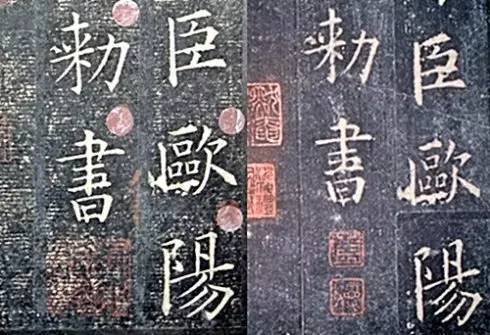 臣歐陽
勑書
臣歐陽
勑書